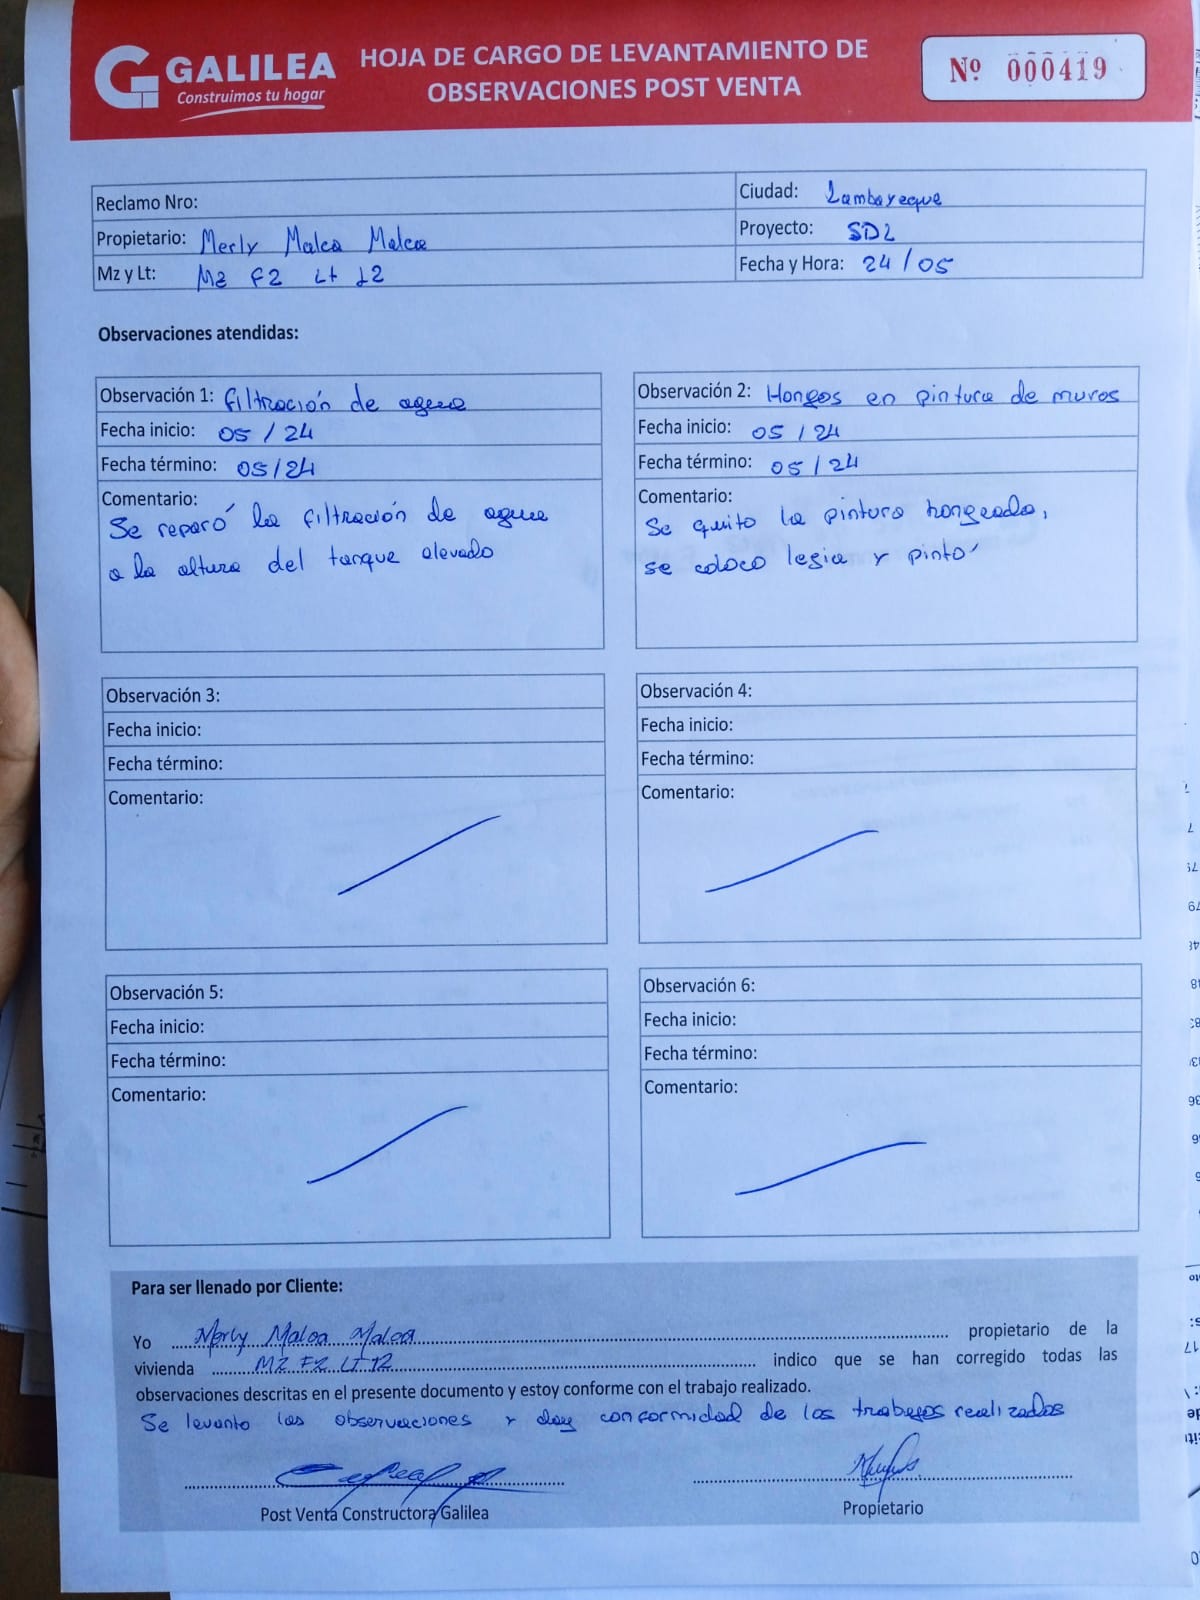 GALILEA
Construimos tu hogar
HOJA DE CARGO DE LEVANTAMIENTO DE
OBSERVACIONES POST VENTA
Nº 000419
Reclamo Nro:
Ciudad: Lambayeque
Propietario: Merly Malca Malca
Proyecto: SDL
Mz y Lt: Mz F2 Lt 12
Fecha y Hora: 24/05
Observaciones atendidas:
Observación 1: filtración de agua
Fecha inicio: 05/24
Fecha término: 05/24
Comentario:
Se reparó la filtración de agua
a la altura del tanque elevado
Observación 2: Hongos en pintura de muros
Fecha inicio: 05/24
Fecha término: 05/24
Comentario:
Se quito la pintura hongeada,
se coloco legia y pinto
Observación 3:
Fecha inicio:
Fecha término:
Comentario:
Observación 4:
Fecha inicio:
Fecha término:
Comentario:
Observación 5:
Fecha inicio:
Fecha término:
Comentario:
Observación 6:
Fecha inicio:
Fecha término:
Comentario:
Para ser llenado por Cliente:
Yo Merly Malca Malca propietario de la
vivienda MZ F2 LT 12 indico que se han corregido todas las
observaciones descritas en el presente documento y estoy conforme con el trabajo realizado.
Se levanto las observaciones y doy conformidad de los trabajos realizados
Post Venta Constructora Galilea
Propietario